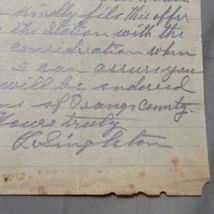 kindly file this offer
the Station with the
consideration when
I can assure you
will be endorsed
of Orange County.
Yours truly
Singleton